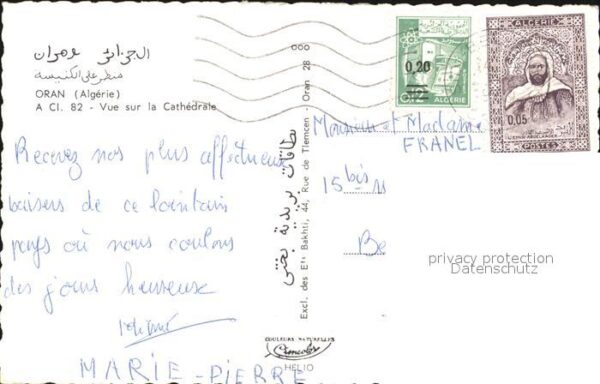 الجزائر وهران
منظر على الكنيسة
ORAN (Algérie)
A Cl. 82 - Vue sur la Cathédrale
Recevez nos plus affectueux
baisers de ce lointain
pays où nous coulons
des jours heureux
MARIE-PIERRE
بطاقات بريدية بختي
Excl. des Ets Bakhti, 44, Rue de Tlemcen - Oran 28
COULEURS NATURELLES
HÉLIO
0,20
ALGERIE
ALGERIE
0,05
POSTES
Monsieur et Madame
FRANEL
15 bis
Be
privacy protection
Datenschutz